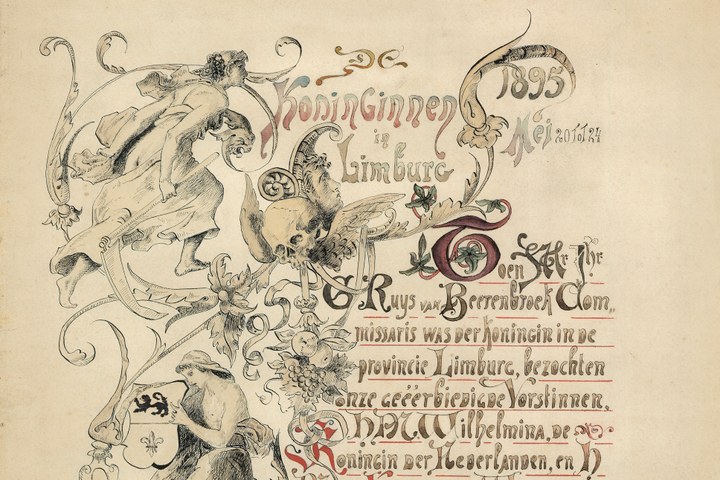 De
Koninginnen
in
Limburg
1895
Mei 20 tot 24
Toen Mr Jhr
G Ruys van Beerenbroek Com„
missaris was der koningin in de
provincie Limburg, bezochten
onze geëerbiedigde Vorstinnen,
H.M. Wilhelmina, de
Koningin der Nederlanden, en H